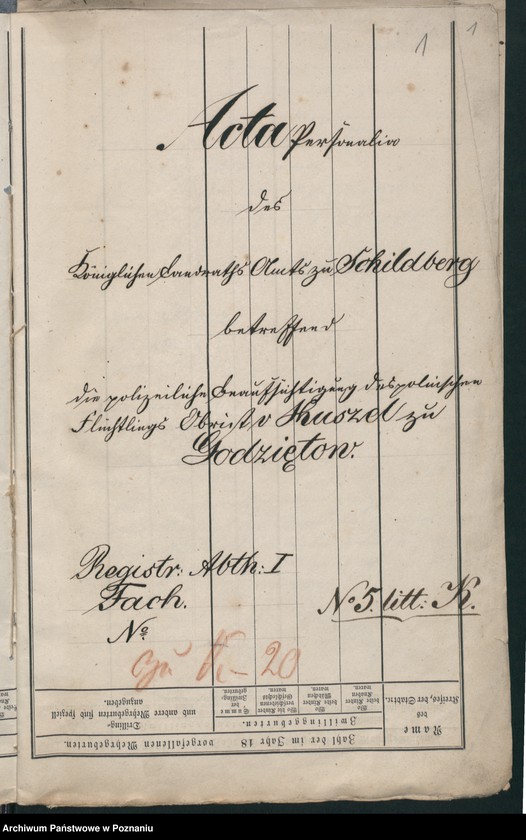 1 1
Acta Personalia
des
Königlichen Landraths Amts zu Schildberg
betreffend
die polizeiliche Beaufsichtigung des polnischen
Flüchtlings Obrist v Kuszel zu
Godziętow.
Registr: Abth: I
Fach.
No
No 5. litt: K.
zu K-20
Zahl der im Jahr 18 vorgefallenen Mehrgeburten.
Name
des
Kreises, der Stadt
Zwillingsgeburten.
Wo
beide Kinder
Knaben
waren.
Wo
beide Kinder
Mädchen
waren.
Wo die Kinder
verschiedenen
Geschlechts
waren.
Summe
der
Zwillings-
geburten.
Drilling-
und andere Mehrgeburten sind speziell
anzugeben.
Archiwum Państwowe w Poznaniu